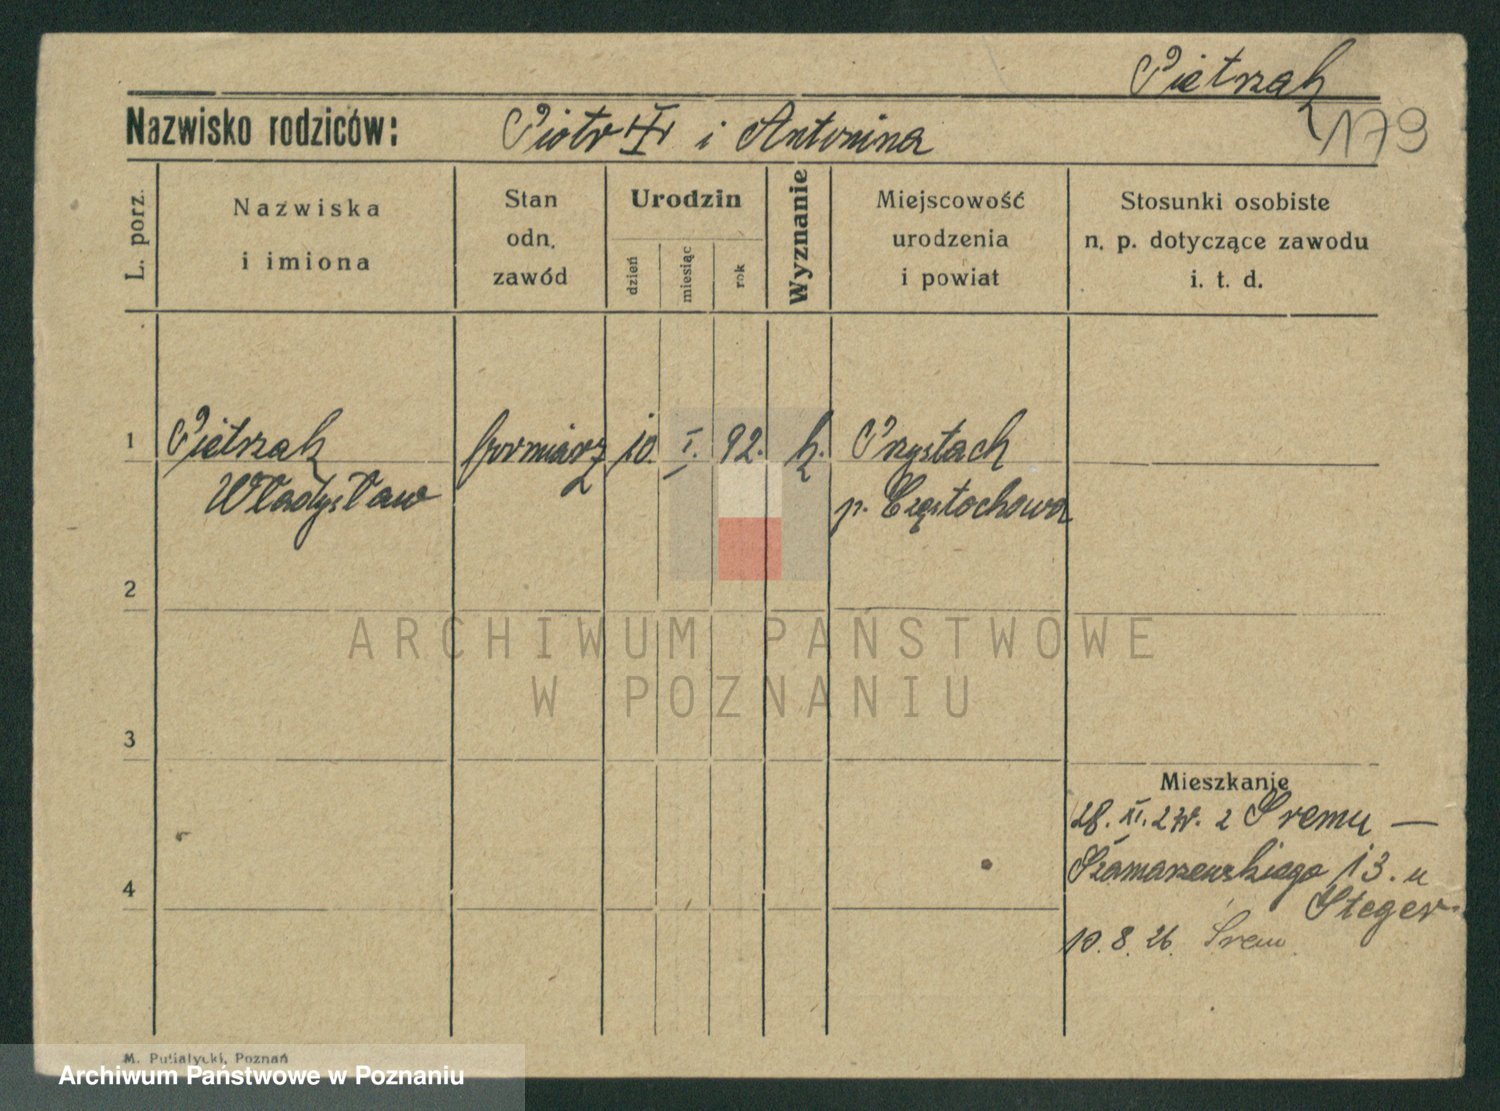 Pietrzak
179
Nazwisko rodziców: Piotr i Antonina
L. porz.
Nazwiska
i imiona
Stan
odn.
zawód
Urodzin
dzień
miesiąc
rok
Wyznanie
Miejscowość
urodzenia
i powiat
Stosunki osobiste
n. p. dotyczące zawodu
i. t. d.
1 Pietrzak formiarz 10. I. 92. k. Przystach
Władysław p. Częstochowa
2
ARCHIWUM PAŃSTWOWE
W POZNANIU
3
Mieszkanie
28. XI. z Śremu —
4 Szamarzewskiego 13. u
Steger
10. 8. 26. Śrem
M. Putiatycki, Poznań
Archiwum Państwowe w Poznaniu